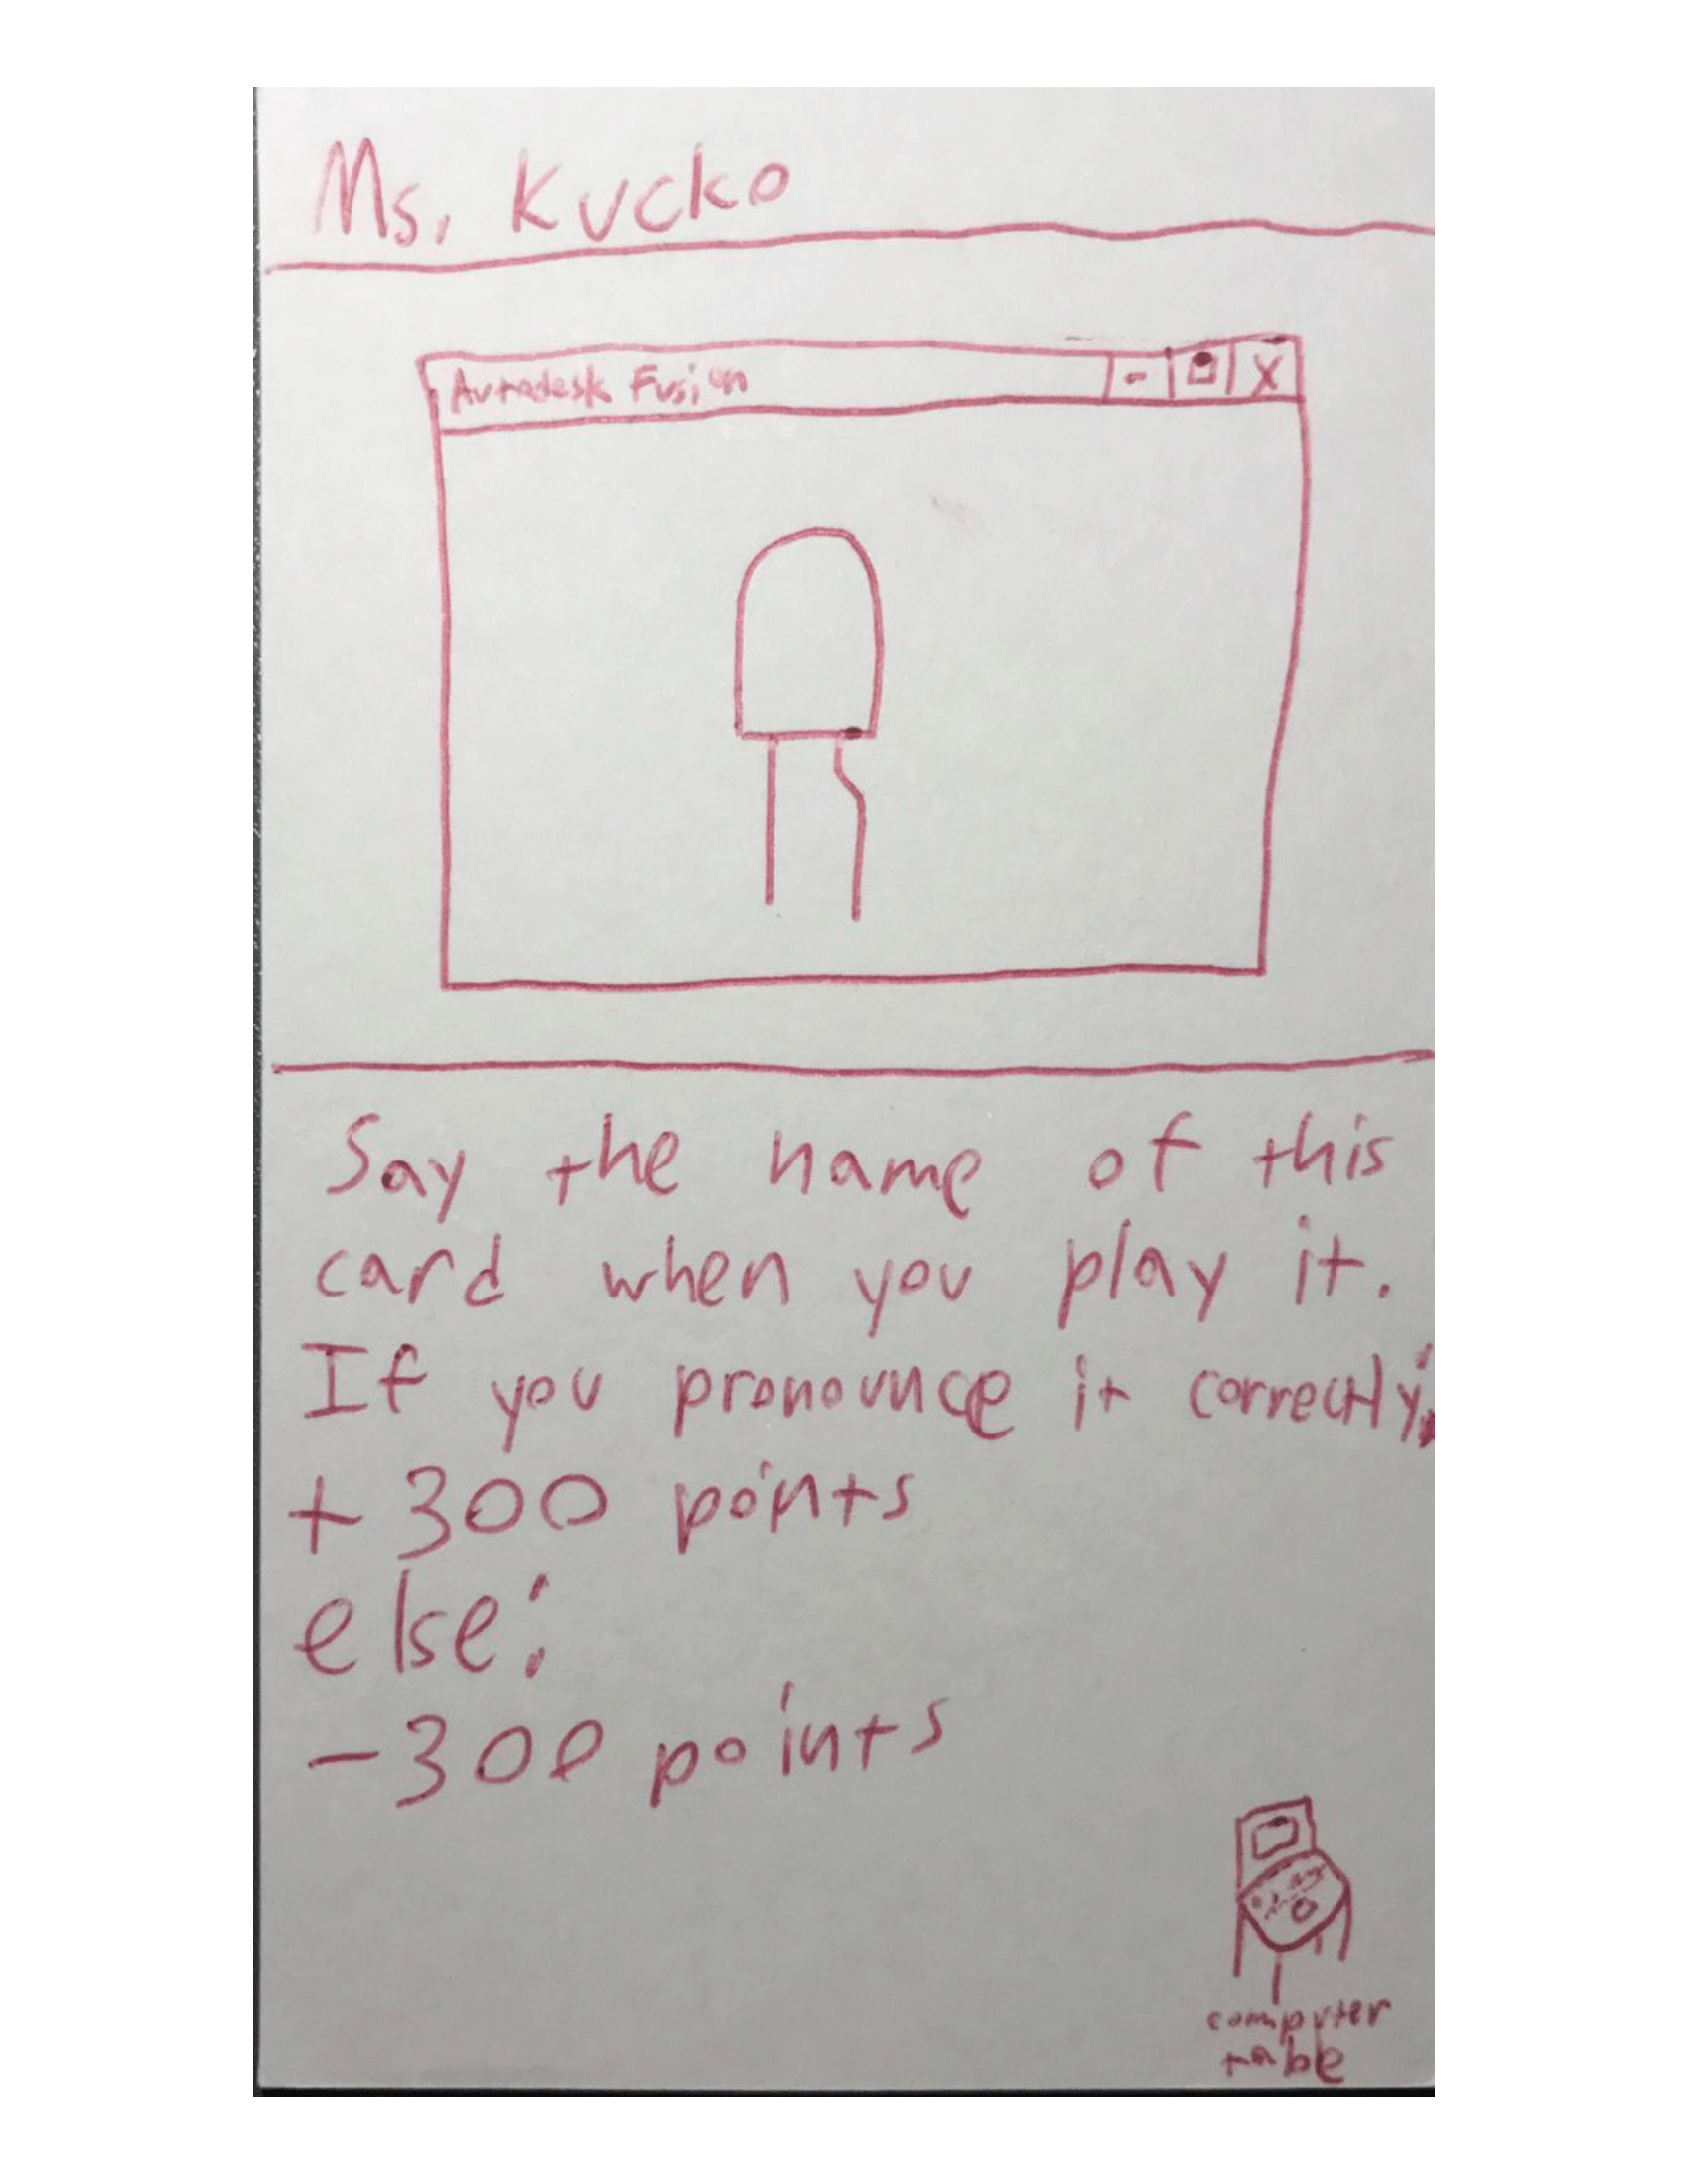 Ms. Kucko
Autodesk Fusion
- X
Say the name of this
card when you play it.
If you pronounce it correctly:
+300 points
else:
-300 points
computer
table